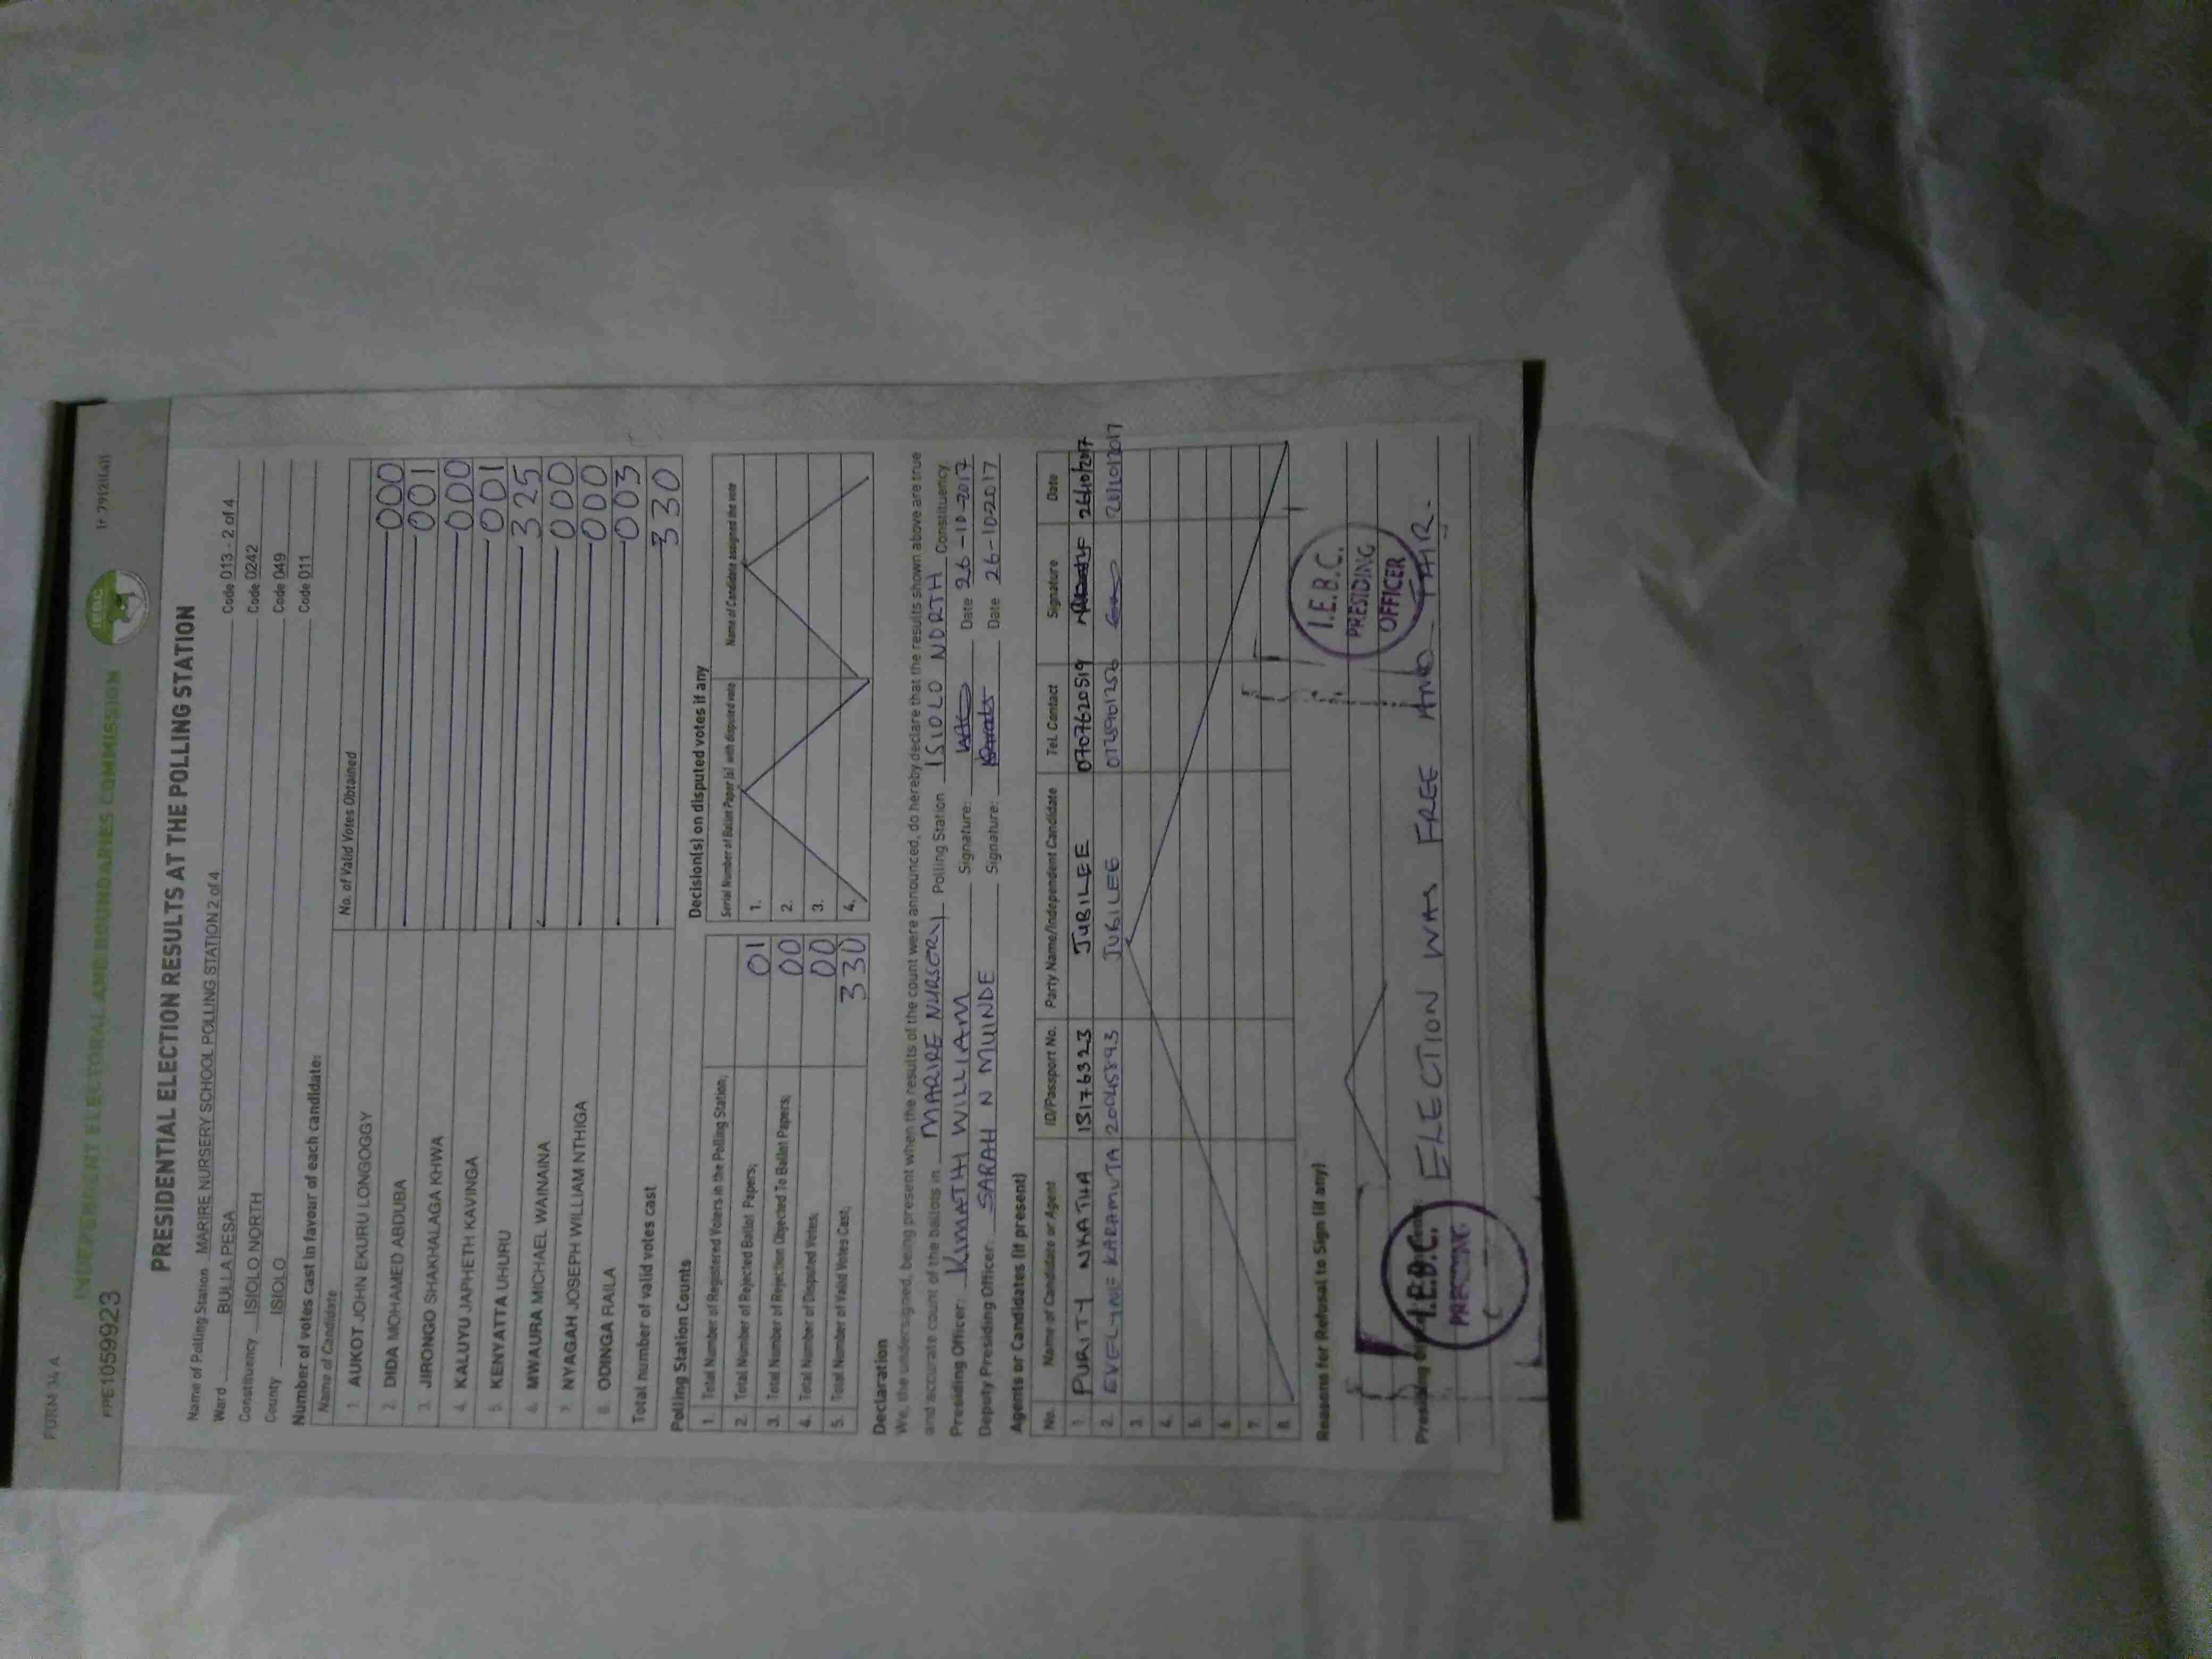 FORM 34 A
INDEPENDENT ELECTORAL AND BOUNDARIES COMMISSION
IEBC
PRE1059923
PRESIDENTIAL ELECTION RESULTS AT THE POLLING STATION
Name of Polling Station MARIRE NURSERY SCHOOL POLLING STATION 2 of 4 Code 013 - 2 of 4
Ward BULLA PESA Code 0242
Constituency ISIOLO NORTH Code 049
County ISIOLO Code 011
Number of votes cast in favour of each candidate:
Name of Candidate No. of Valid Votes Obtained
1. AUKOT JOHN EKURU LONGOGGY 000
2. DIDA MOHAMED ABDUBA 001
3. JIRONGO SHAKHALAGA KHWA 000
4. KALUYU JAPHETH KAVINGA 001
5. KENYATTA UHURU 325
6. MWAURA MICHAEL WAINAINA 000
7. NYAGAH JOSEPH WILLIAM NTHIGA 000
8. ODINGA RAILA 003
Total number of valid votes cast 330
Polling Station Counts
1. Total Number of Registered Voters in the Polling Station;
2. Total Number of Rejected Ballot Papers; 01
3. Total Number of Rejection Objected To Ballot Papers; 00
4. Total Number of Disputed Votes; 00
5. Total Number of Valid Votes Cast; 330
Decision(s) on disputed votes if any
Serial Number of Ballot Paper (s) with disputed vote Name of Candidate assigned the vote
1.
2.
3.
4.
Declaration
We, the undersigned, being present when the results of the count were announced, do hereby declare that the results shown above are true
and accurate count of the ballots in MARIRE NURSERY Polling Station ISIOLO NORTH Constituency.
Presiding Officer: KIMATHI WILLIAM Signature: Date 26-10-2017
Deputy Presiding Officer: SARAH N MUINDE Signature: Date 26-10-2017
Agents or Candidates (if present)
No. Name of Candidate or Agent ID/Passport No. Party Name/Independent Candidate Tel. Contact Signature Date
1. PURITY NKATHA 13176323 JUBILEE 0707620519 26/10/2017
2. EVELYNE KARAMUTA JUBILEE
3.
4.
5.
6.
7.
8.
Reasons for Refusal to Sign (if any)
I.E.B.C.
PRESIDING
OFFICER
ELECTION WAS FREE AND FAIR.
I.E.B.C.
PRESIDING